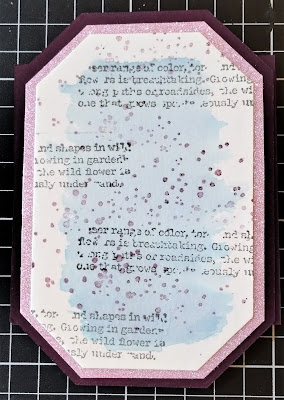 ser range of color, for nd sh
flow rs is breathtaking. Glowing
long p ths or roadsides, the wi
one that grows spo te eously un
nd shapes in wil
lowing in garden
the wild flower is
usly under and.
user range of color, for nd sh
flow rs is breathtaking. Glowing
long p ths or roadsides, the wil
one that grows spo te eously un
for nd shapes in wil
s. Glowing in garde
s, the wild flower is
usly under and.